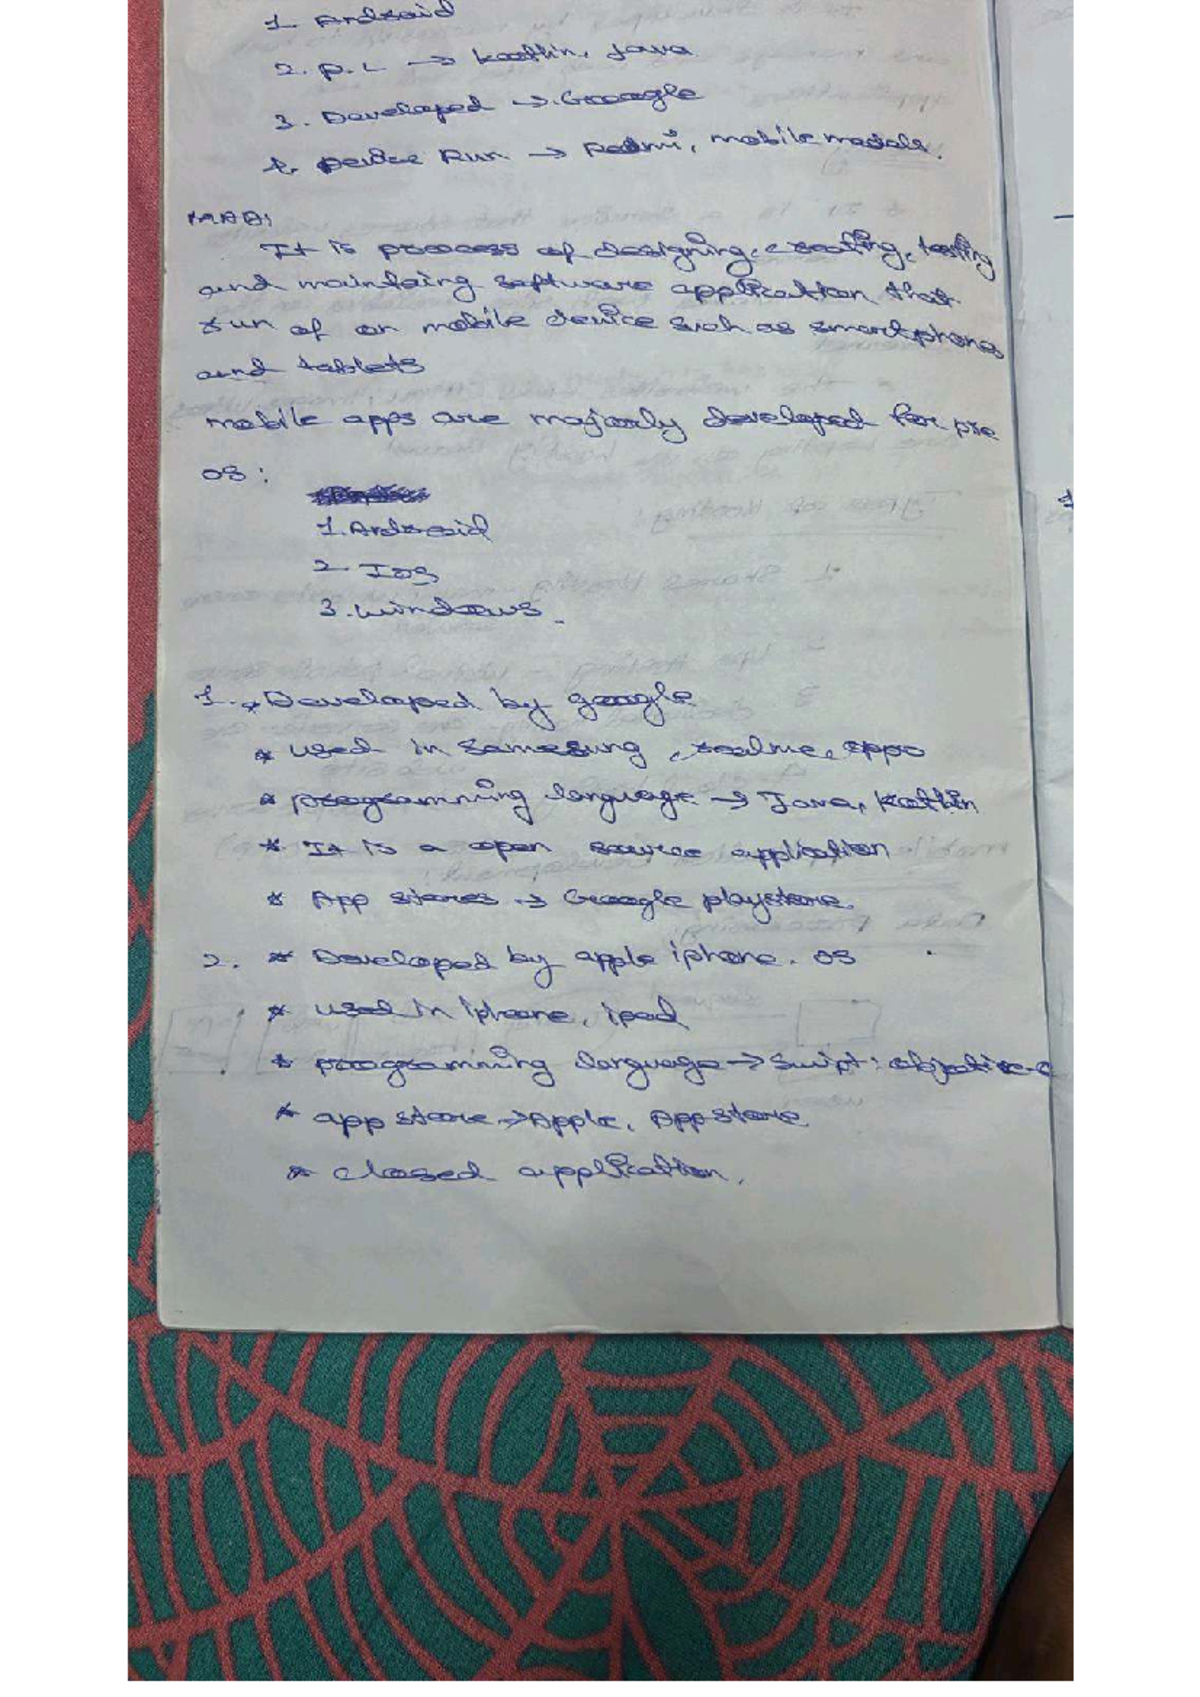 1. Android
2. P.L → kotlin, Java
3. Developed → Google
4. Device Run → Redmi, mobile models.
MAD:
It is process of designing, creating, testing
and maintaing software application that
run of on mobile device such as smartphones
and tablets
mobile apps are majorly developed for
OS:
1. Android
2. IOS
3. windows.
1. * Developed by google
* used in Samesung, realme, oppo
* programming language → Java, Kotlin
* It is a open source application
* App stores → Google playstore.
2. * Developed by apple iphone. OS
* used in iphone, ipad
* programming language → Swipt: objective-c
* app store → Apple, App store
* closed application.